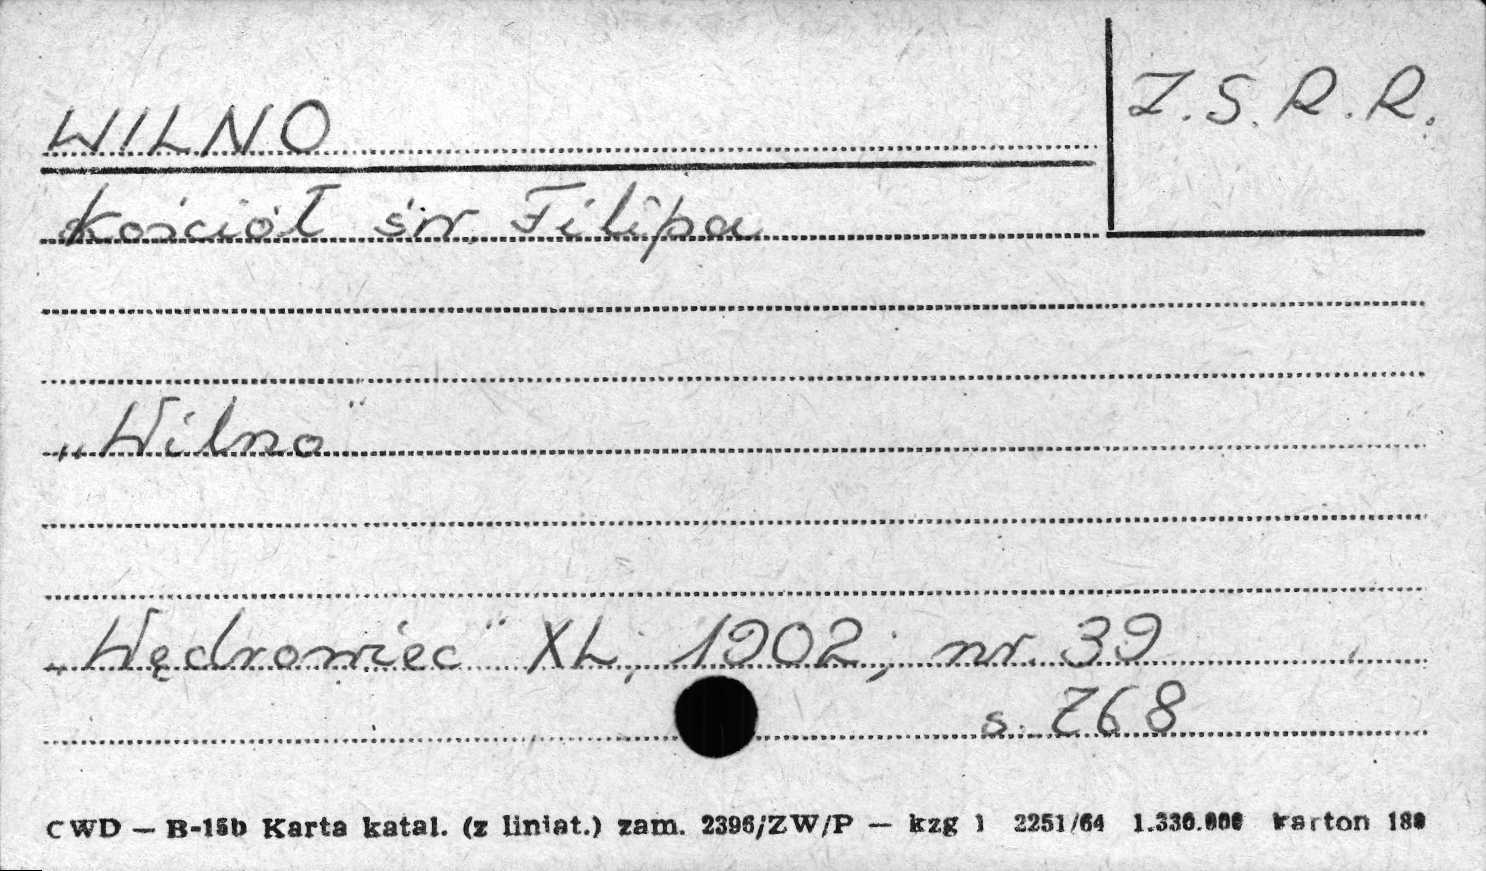 WILNO
Z.S.R.R.
Kościół św. Filipa
„Wilno"
„Wędrowiec" XL; 1902; nr. 39
s. 768
CWD — B-15b Karta katal. (z liniat.) zam. 2396/ZW/P — kzg 1 2251/64 1.330.000 karton 180